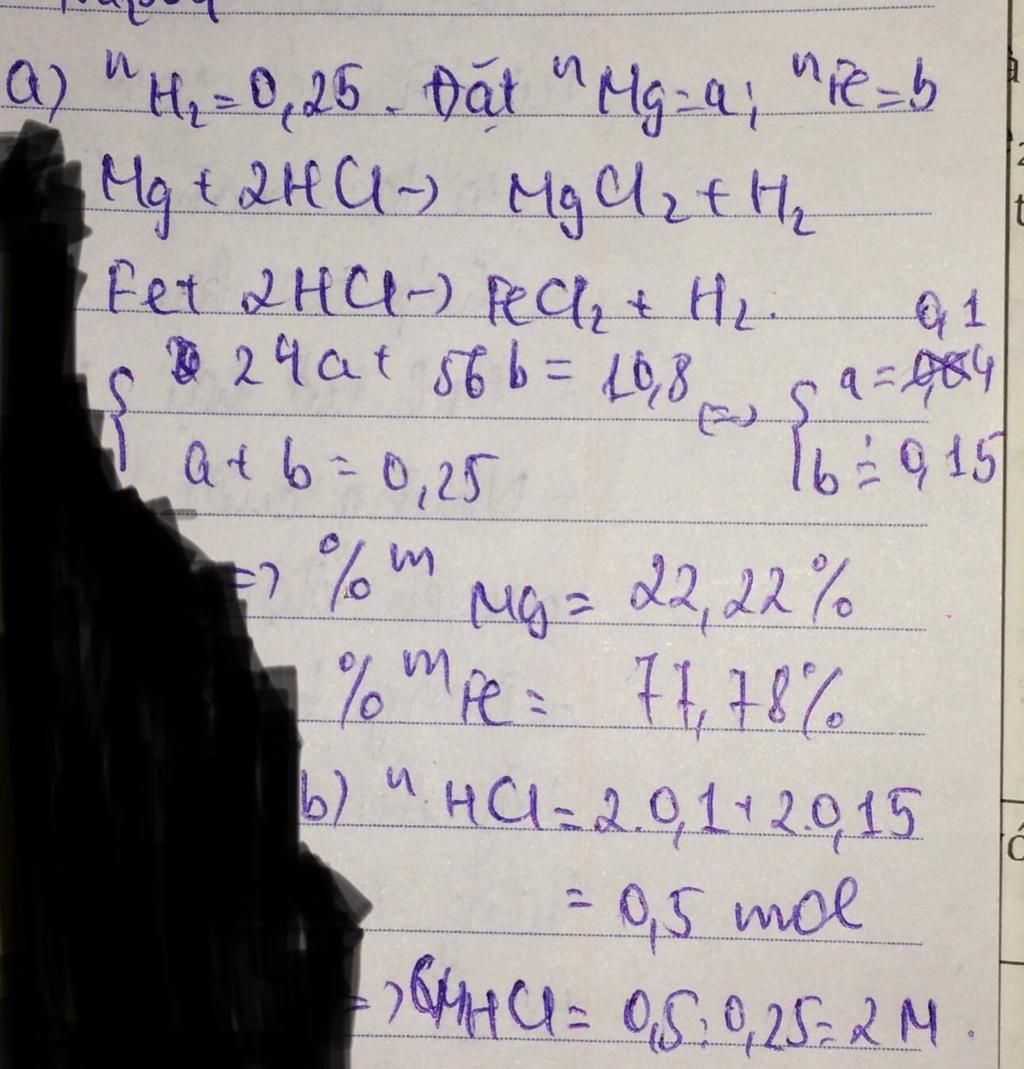 a) nH₂ = 0,25. Đặt nMg = a; nFe = b
Mg + 2HCl -> MgCl₂ + H₂
Fe + 2HCl -> FeCl₂ + H₂.
24a + 56b = 10,8 <=> a = 0,1
a + b = 0,25 b = 0,15
=> %mMg = 22,22%
%mFe = 77,78%
b) nHCl = 2.0,1 + 2.0,15
= 0,5 mol
=> CMHCl = 0,5 : 0,25 = 2M.